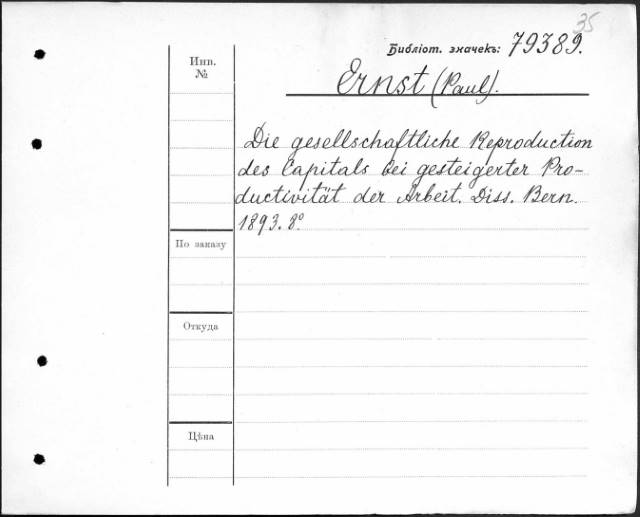 35
Библіот. значекъ: 79389.
Инв.
№
Ernst (Paul).
Die gesellschaftliche Reproduction
des Capitals bei gesteigerter Pro-
ductivität der Arbeit. Diss. Bern.
1893. 8°
По заказу
Откуда
Цѣна